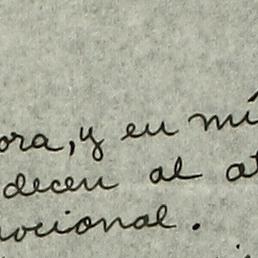 ora, y en mi
decen al at
ocional.